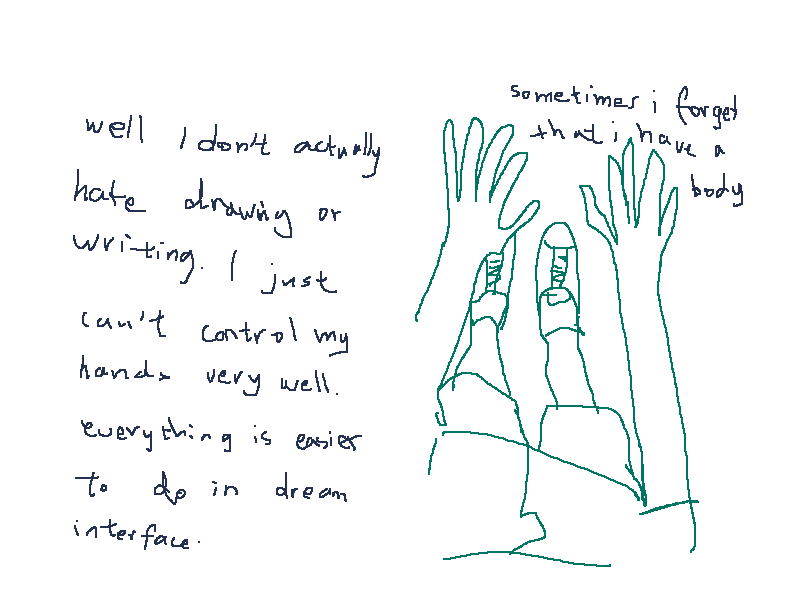 well I don't actually
hate drawing or
writing. I just
can't control my
hands very well.
everything is easier
to do in dream
interface.
sometimes i forget
that i have a
body